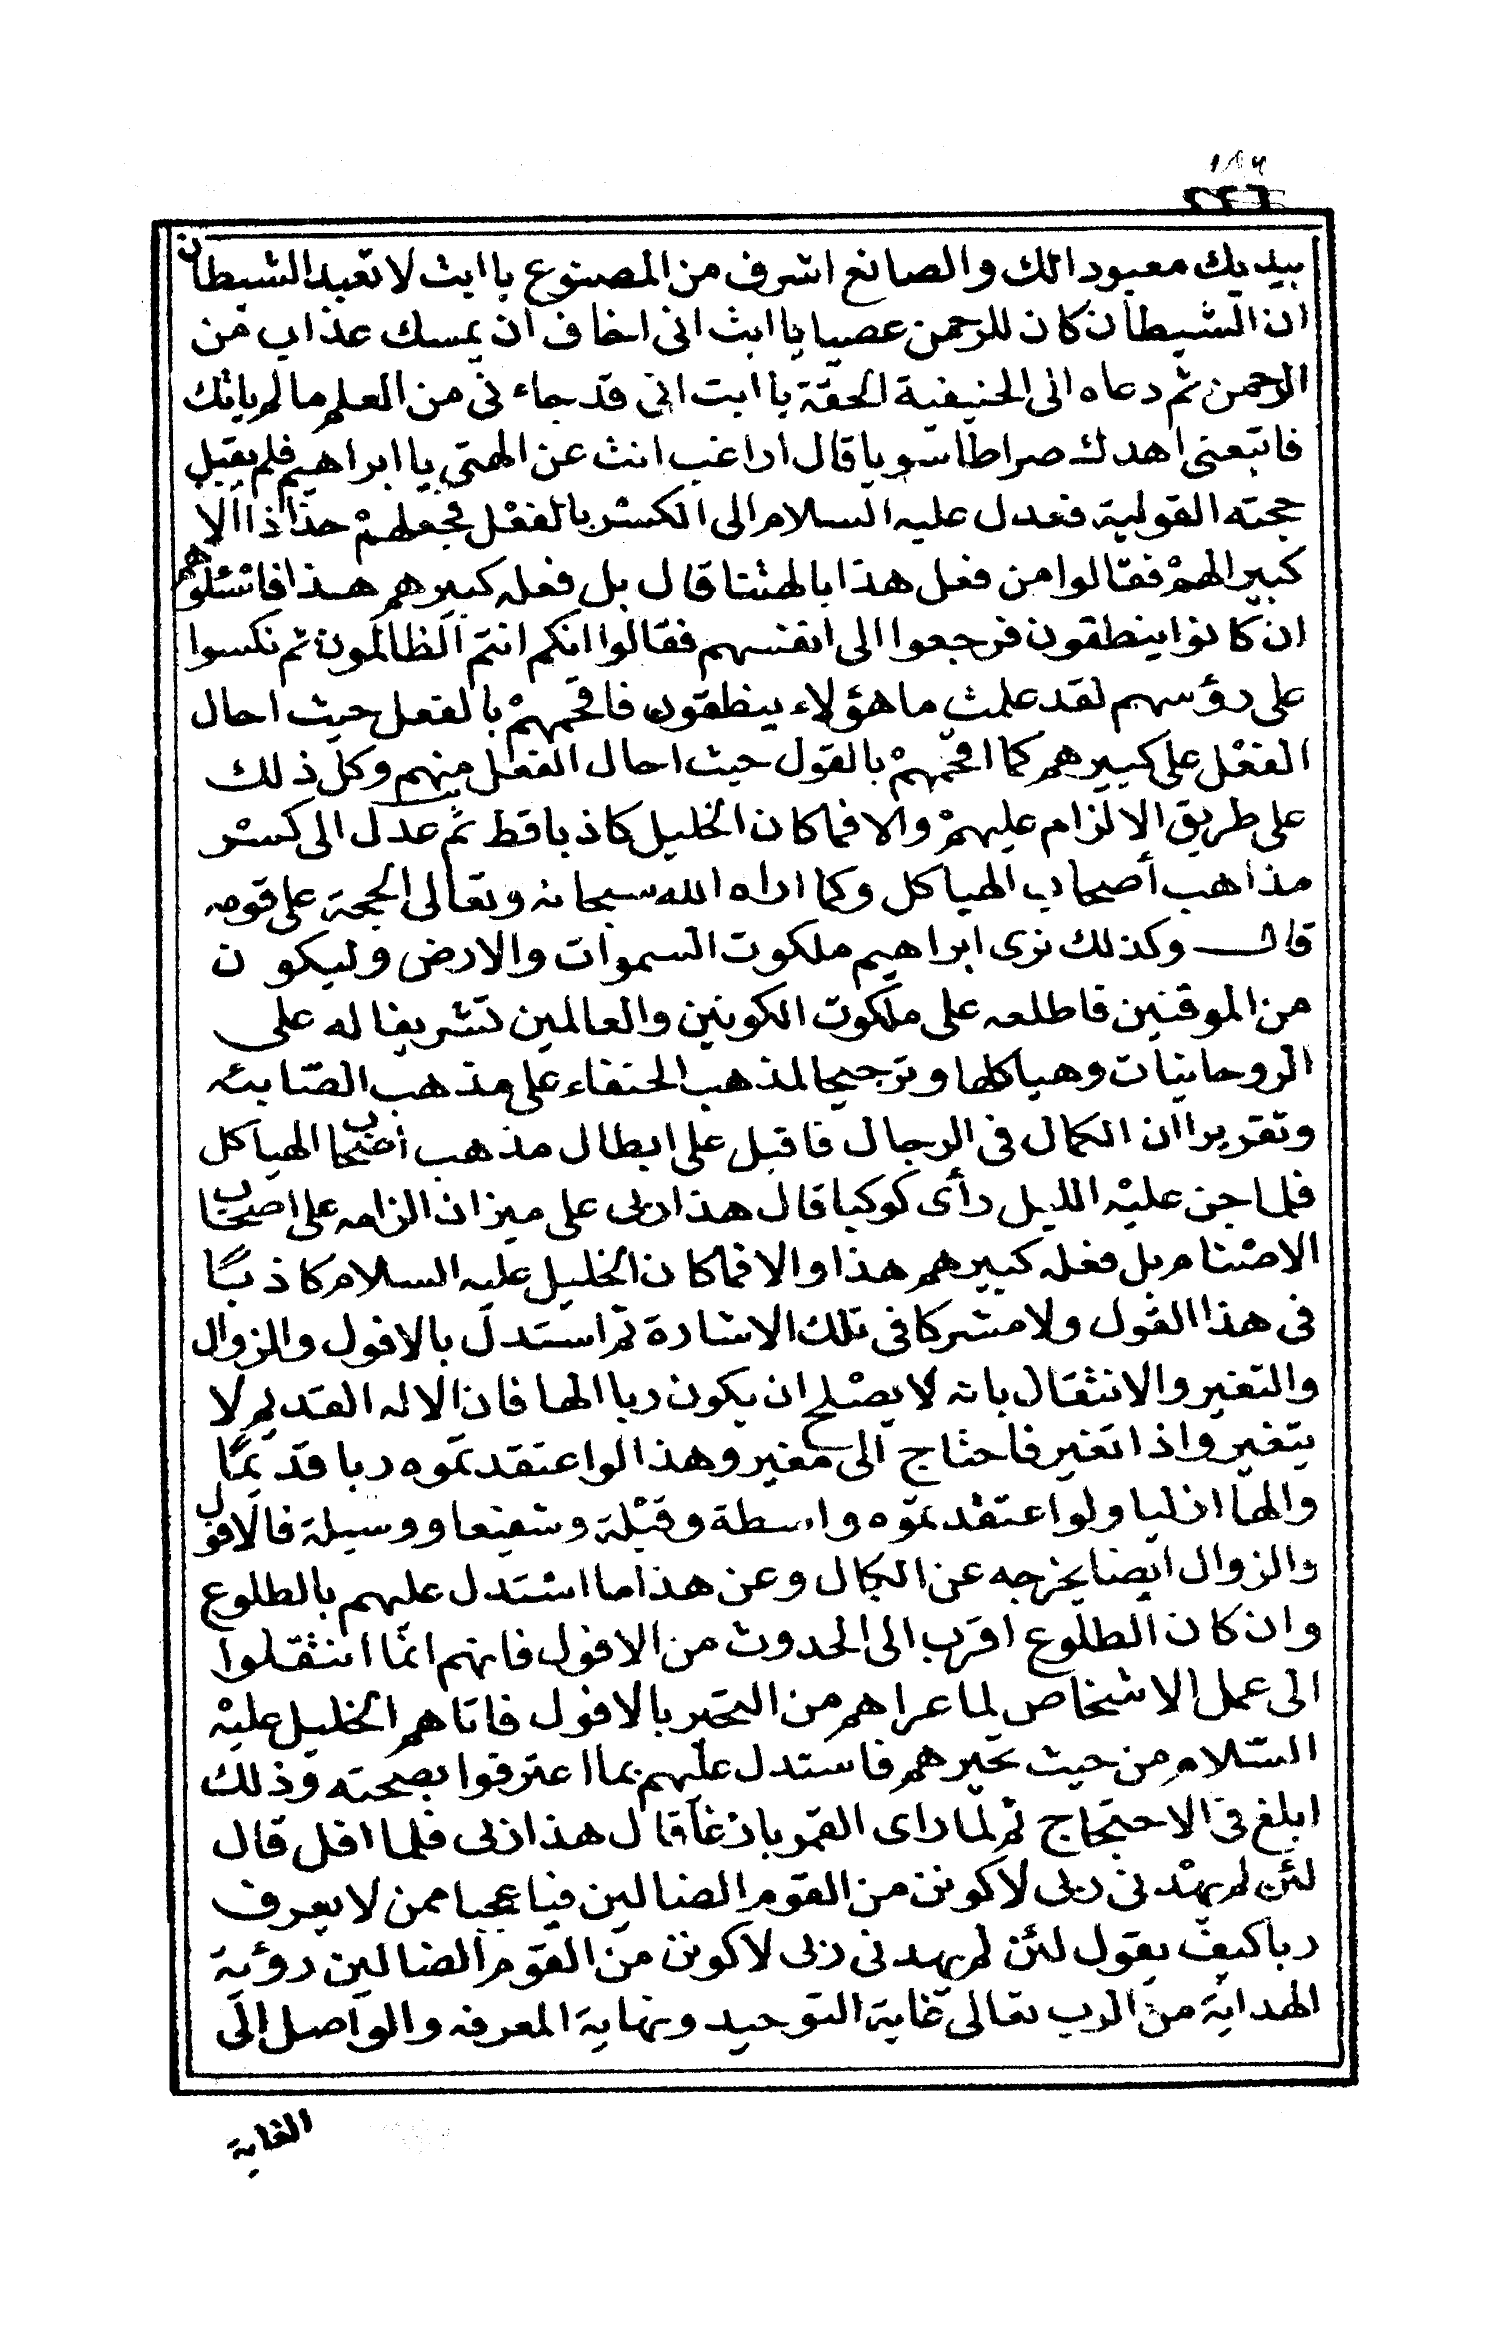 ١٨٩
بيديك معبودا لك والصانع اشرف من المصنوع يا ابت لا تعبد الشيطان
ان الشيطان كان للرحمن عصيا يا ابت انى اخاف ان يمسك عذاب من
الرحمن ثم دعاه الى الحنيفية الحقة يا ابت انى قد جاءنى من العلم ما لم ياتك
فاتبعنى اهدك صراطا سويا قال اراغب انت عن الهتى يا ابراهيم فلم يقبل
حجته القولية فعدل عليه السلام الى الكسر بالفعل فجعلهم جذاذا الا
كبيرا لهم فقالوا من فعل هذا بالهتنا قال بل فعله كبيرهم هذا فاسئلوهم
ان كانوا ينطقون فرجعوا الى انفسهم فقالوا انكم انتم الظالمون ثم نكسوا
على رؤسهم لقد علمت ما هؤلاء ينطقون فافحمهم بالفعل حيث احال
الفعل على كبيرهم كما افحمهم بالقول حيث احال الفعل منهم وكل ذلك
على طريق الالزام عليهم والا فما كان الخليل كاذبا قط ثم عدل الى كسر
مذاهب أصحاب الهياكل وكما اراه الله سبحانه وتعالى الحجة على قومه
قال وكذلك نرى ابراهيم ملكوت السموات والارض وليكون
من الموقنين فاطلعه على ملكوت الكونين والعالمين تشريفا له على
الروحانيات وهياكلها وترجيحا لمذهب الحنفاء على مذهب الصابئه
وتقريرا ان الكمال فى الرجال فاقبل على ابطال مذهب أصحاب الهياكل
فلما جن عليه الليل رأى كوكبا قال هذا ربى على ميزان الزامه على اصحاب
الاصنام بل فعله كبيرهم هذا والا فما كان الخليل عليه السلام كاذبًا
فى هذا القول ولا مشركا فى تلك الاشارة ثم استدل بالافول والزوال
والتغير والانتقال بانه لا يصلح ان يكون ربا الها فان الاله القديم لا
يتغير واذا تغير فاحتاج الى مغير وهذا لو اعتقدتموه ربا قديمًا
والها ازليا ولو اعتقدتموه واسطة وقبلة وشفيعا ووسيلة فالافول
والزوال ايضا يخرجه عن الكمال وعن هذا ما استدل عليهم بالطلوع
وان كان الطلوع اقرب الى الحدوث من الافول فانهم انما انتقلوا
الى عمل الاشخاص لما عراهم من التحير بالافول فاتاهم الخليل عليه
السلام من حيث تحيرهم فاستدل عليهم بما اعترفوا بصحته وذلك
ابلغ فى الاحتجاج ثم لما راى القمر بازغا قال هذا ربى فلما افل قال
لئن لم يهدنى ربى لاكونن من القوم الضالين فيا عجبا ممن لا يعرف
ربا كيف يقول لئن لم يهدنى ربى لاكونن من القوم الضالين رؤية
الهداية من الرب تعالى غاية التوحيد ونهاية المعرفه والواصل الى
الغاية